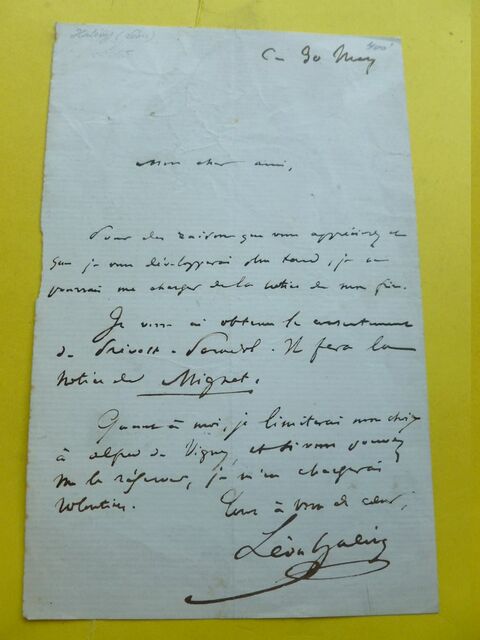 Halévy (Léon)
400
Ce 30 May
Mon cher ami,
Pour des raisons que vous apprécierez et
que je vous développerai plus tard, je ne
pourrai me charger de la notice de mon frère.
Je viens d'obtenir le consentement
de Prévost-Paradol. Il fera la
notice de Mignet.
Quant à moi, je limiterai mon choix
à Alfred de Vigny, et si vous pouvez
me le réserver, je m'en chargerai
volontiers.
Tout à vous de cœur,
Léon Halévy